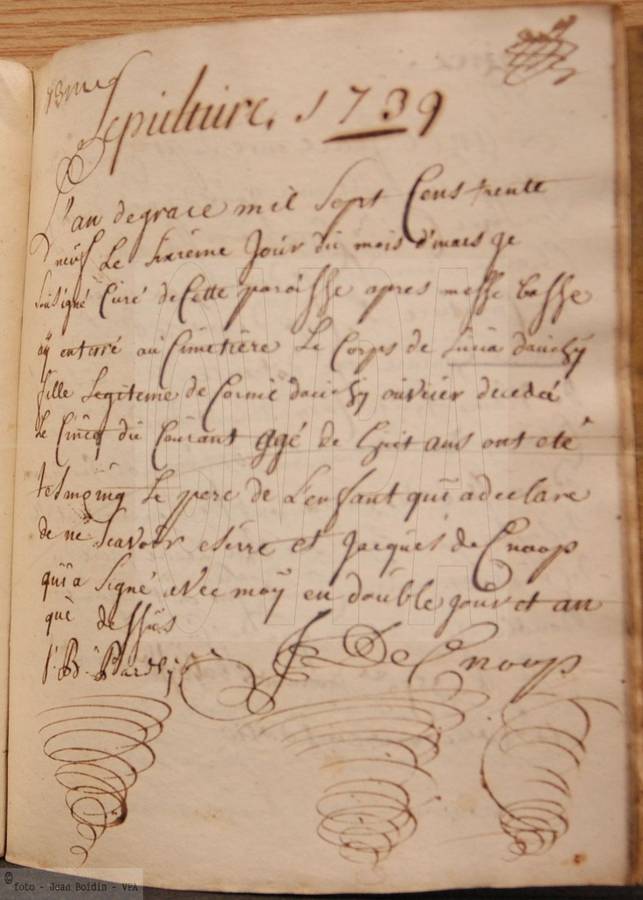 13me
Sepulture. 1739
L'an degrace mil Sept Cens trente
neuf Le Sixieme Jour du mois d'mars Je
Soussigné Curé de Cette paroisse apres messe basse
aÿ enterré au Cimetiere Le Corps de
fille Legiteme de ouvrier decedé
le Cincq du Courant agé de huit ans ont eté
tesmoing Le pere de L'enfant qui adeclare
de ne Scavoir eserre et Jacques de Cnoop
qui a Signé avec moÿ en double jour et an
que dessus
J. De Cnoop
© foto - Jean Boidin - VPA